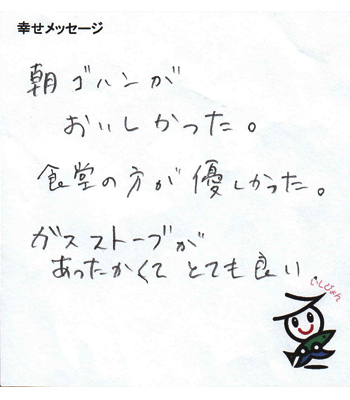 幸せメッセージ
朝ゴハンが
おいしかった。
食堂の方が優しかった。
ガスストーブが
あったかくて とても良い
いしぴょん